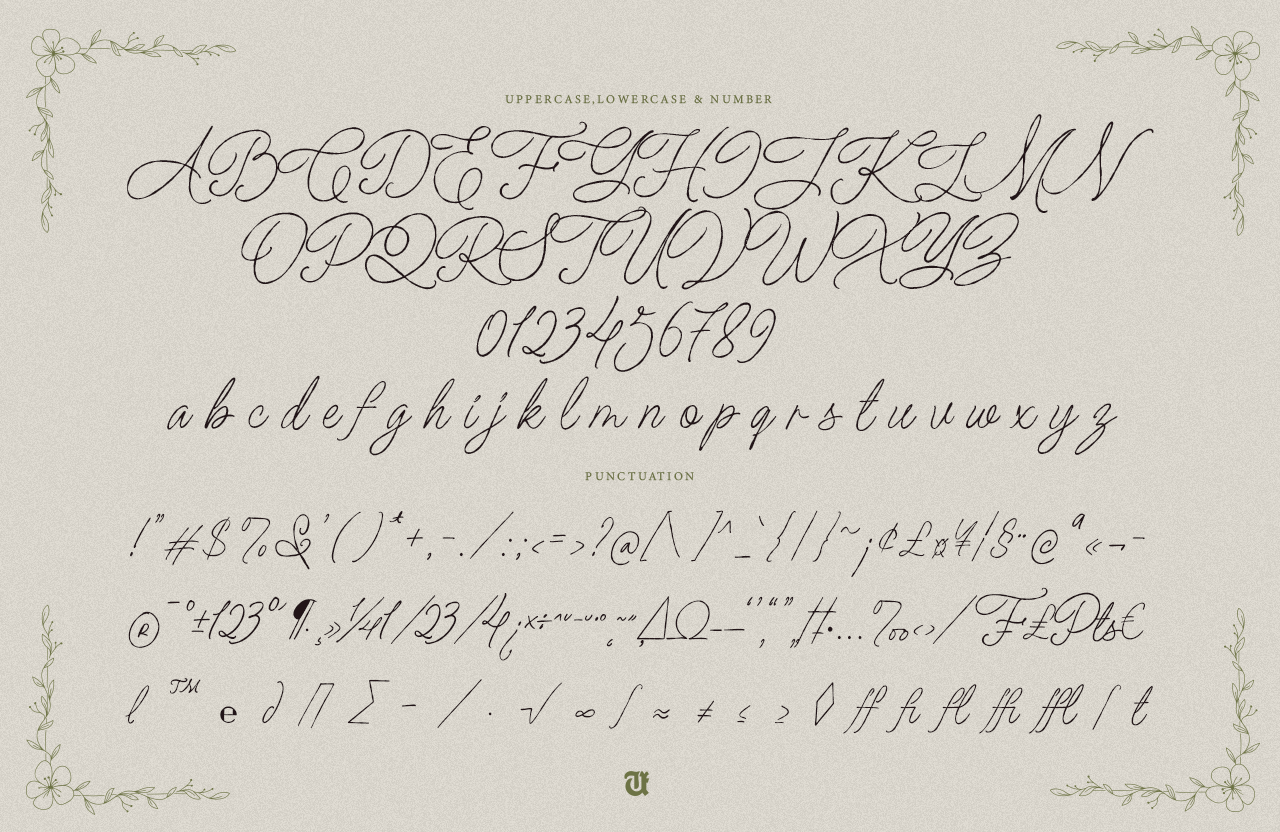 UPPERCASE,LOWERCASE & NUMBER
ABCDEFGHIJKLMN
OPQRSTUVWXYZ
0123456789
a b c d e f g h i j k l m n o p q r s t u v w x y z
PUNCTUATION
!"#$%&'()*+,-./:;<=>?@[\]^_`{|}~¡¢£¤¥¦§¨©ª«¬-
®¯°±123º´¶·¸»1/41/23/4¿×÷ˆˇ˘˙˚˛˜˝ΔΩ–—‘’‚“”„‡•…‰‹›⁄₣₤₧€
ℓ ™ ℮ ∂ ∏ ∑ − ∕ ∙ √ ∞ ∫ ≈ ≠ ≤ ≥ ◊ ff fi fl ffi ffl ſ t
U